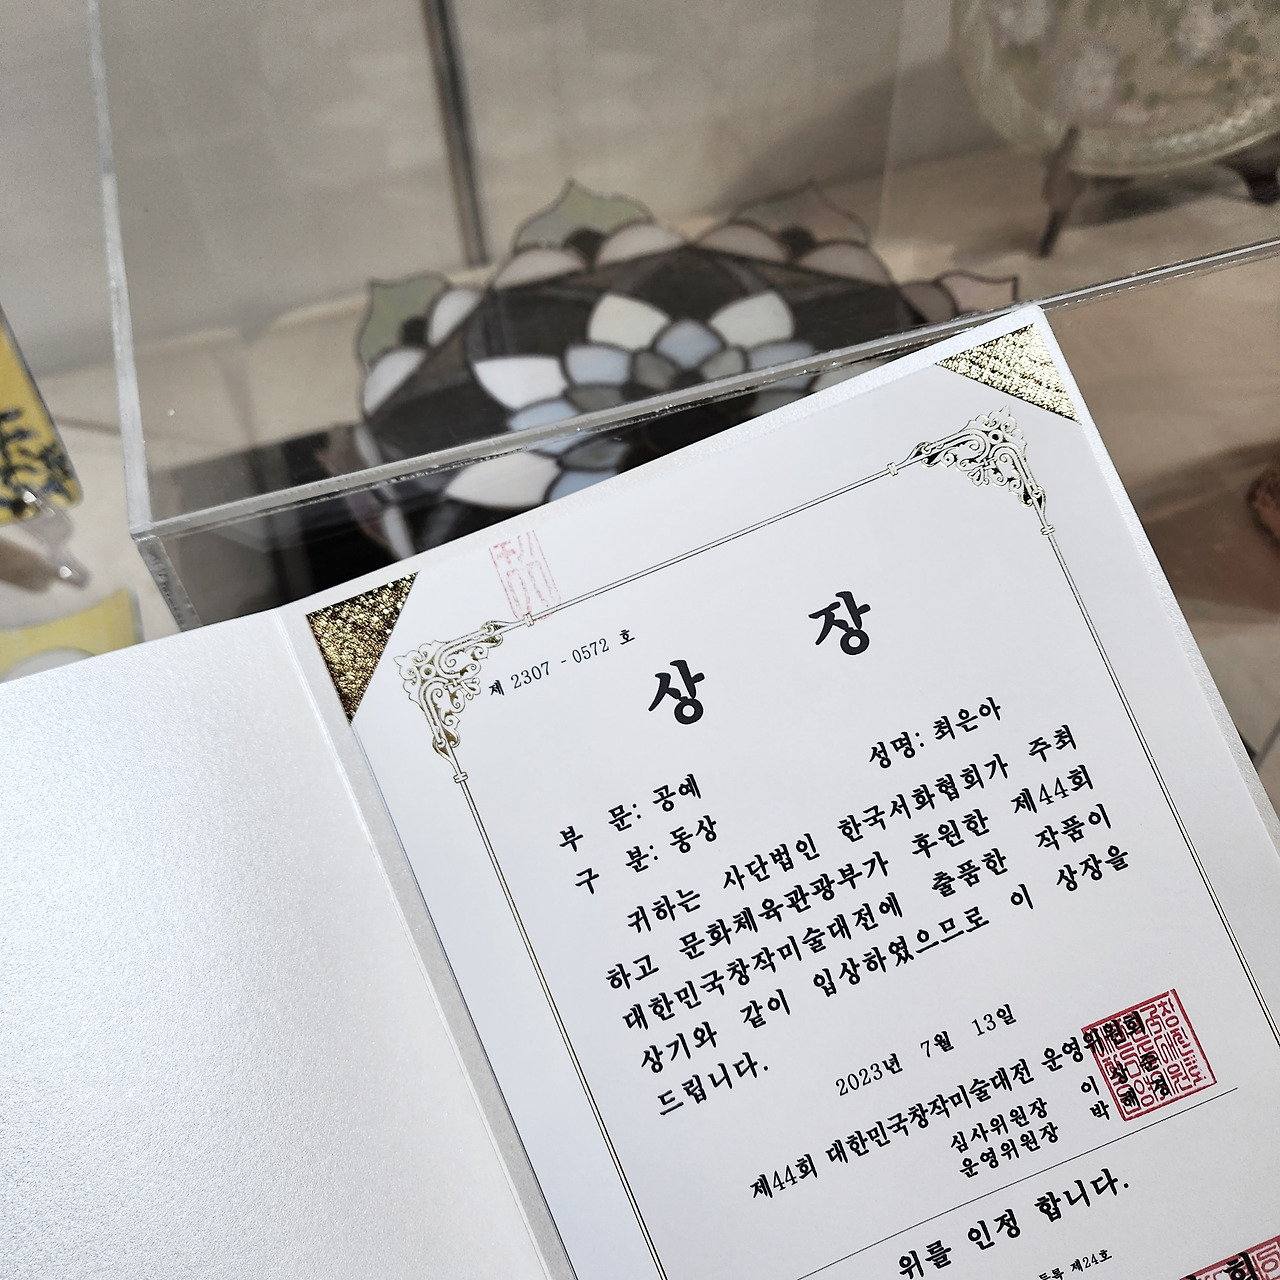 제 2307 - 0572 호
상 장
부 문: 공예
구 분: 동상
성명: 최은아
귀하는 사단법인 한국서화협회가 주최
하고 문화체육관광부가 후원한 제44회
대한민국창작미술대전에 출품한 작품이
상기와 같이 입상하였으므로 이 상장을
드립니다.
2023년 7월 13일
제44회 대한민국창작미술대전 운영위원회
심사위원장 이 상 준
운영위원장 박
위를 인정 합니다.
등록 제24호
회